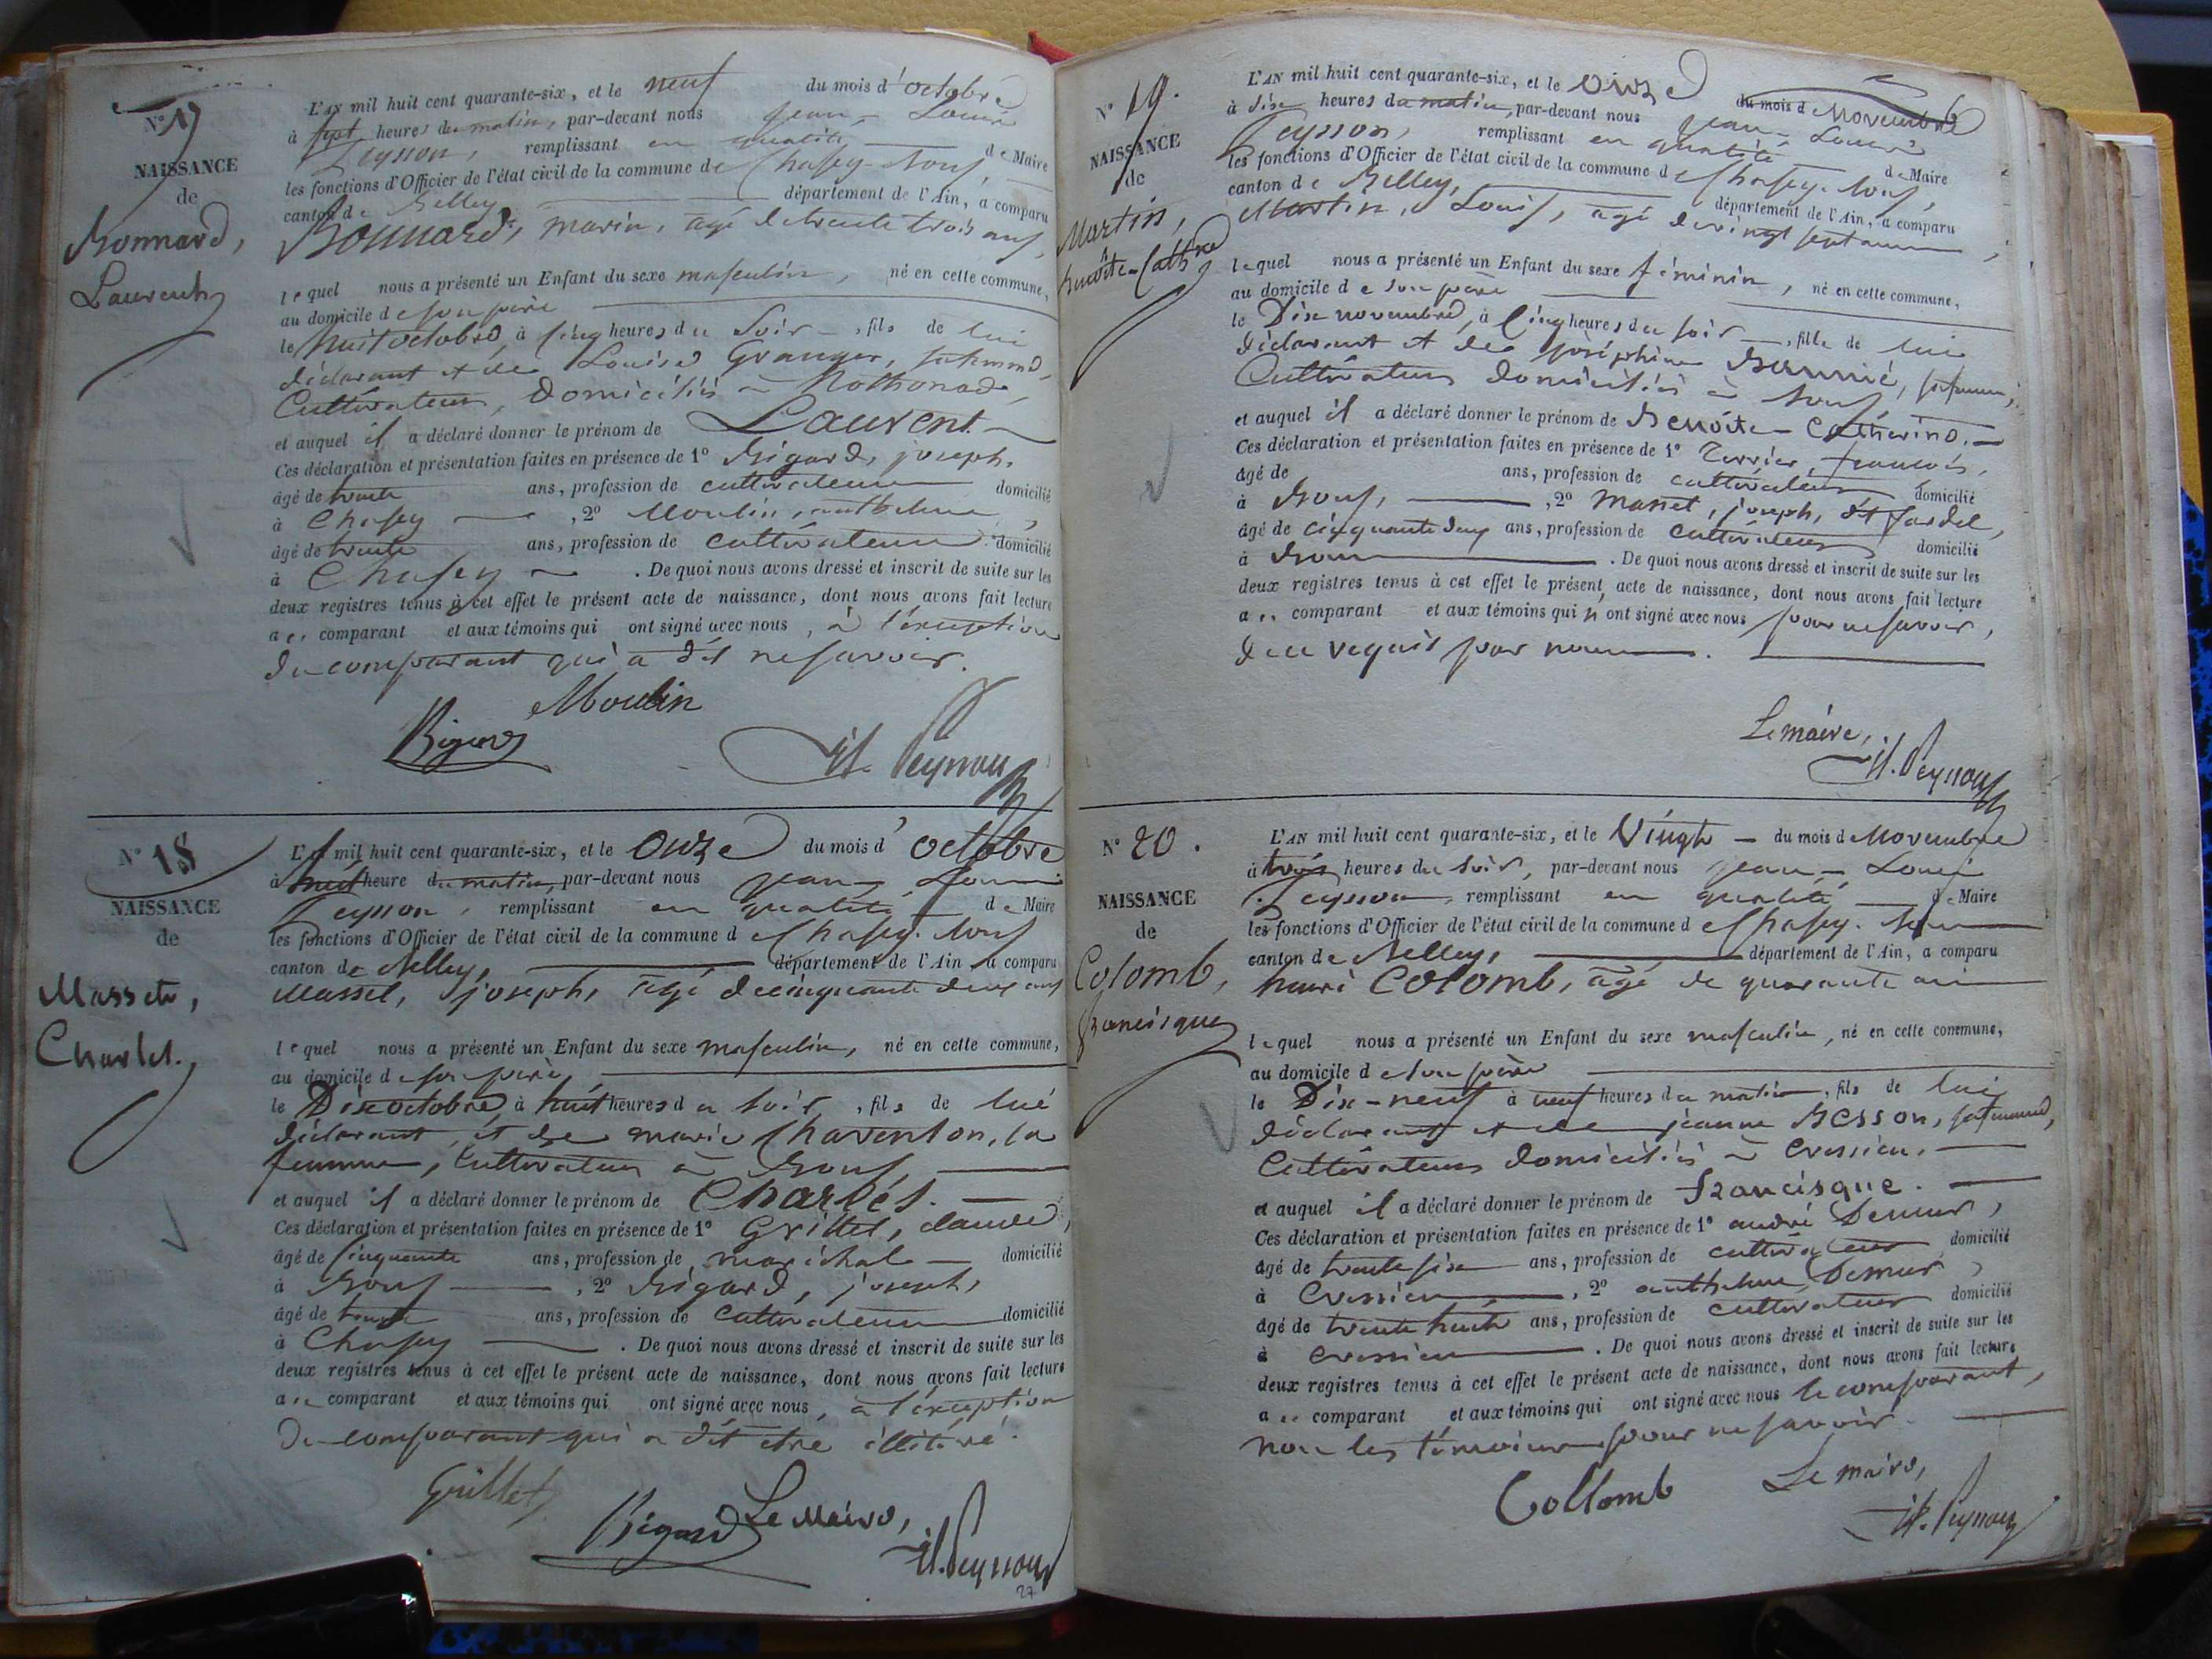 N° 17
NAISSANCE
de
Bonnard,
Laurent
L'AN mil huit cent quarante-six, et le neuf du mois d'octobre
à sept heures du matin, par-devant nous jean-Louis
Peysson, remplissant en qualité de Maire
les fonctions d'Officier de l'état civil de la commune de Chasey-bons,
canton de Belley, département de l'Ain, a comparu
Bonnard, marin, agé de trente trois ans,
lequel nous a présenté un Enfant du sexe masculin, né en cette commune,
au domicile de son père
le huit octobre, à cinq heures du soir, fils de lui
déclarant et de Louise Granger, sa femme,
Cultivateurs, domiciliés à Rothonod,
et auquel il a déclaré donner le prénom de Laurent
Ces déclaration et présentation faites en présence de 1° Rigard, joseph,
âgé de trente ans, profession de cultivateur domicilié
à Chasey, 2° Moulin, anthelme,
âgé de trente ans, profession de cultivateur domicilié
à Chasey. De quoi nous avons dressé et inscrit de suite sur les
deux registres tenus à cet effet le présent acte de naissance, dont nous avons fait lecture
au comparant et aux témoins qui ont signé avec nous, à l'exception
du comparant qui a dit ne savoir.
Moulin
Rigard
Peysson
N° 18
NAISSANCE
de
Masset,
Charles.
L'AN mil huit cent quarante-six, et le onze du mois d'octobre
à huit heure du matin, par-devant nous jean-Louis
Peysson, remplissant en qualité de Maire
les fonctions d'Officier de l'état civil de la commune de Chasey-bons
canton de Belley, département de l'Ain, a comparu
Masset, joseph, agé de cinquante deux ans
lequel nous a présenté un Enfant du sexe masculin, né en cette commune,
au domicile de son père
le Dix octobre, à huit heures du soir, fils de lui
déclarant, et de marie Charenton, sa
femme, cultivateurs à Bons,
et auquel il a déclaré donner le prénom de Charles.
Ces déclaration et présentation faites en présence de 1° Grillet, claude,
âgé de cinquante ans, profession de maréchal domicilié
à Bons, 2° Rigard, joseph,
âgé de trente ans, profession de cultivateur domicilié
à Chasey. De quoi nous avons dressé et inscrit de suite sur les
deux registres tenus à cet effet le présent acte de naissance, dont nous avons fait lecture
au comparant et aux témoins qui ont signé avec nous, à l'exception
du comparant qui a dit etre illitéré.
Grillet
Rigard
Le Maire,
Peysson
27
N° 19.
NAISSANCE
de
Martin,
benoîte-Cathne
L'AN mil huit cent quarante-six, et le onze du mois de Novembre
à dix heures du matin, par-devant nous jean-Louis
Peysson, remplissant en qualité de Maire
les fonctions d'Officier de l'état civil de la commune de Chasey-bons,
canton de Belley, département de l'Ain, a comparu
Martin, Louis, agé de vingt sept ans,
lequel nous a présenté un Enfant du sexe féminin, né en cette commune,
au domicile de son père
le Dix novembre, à cinq heures du soir, fille de lui
déclarant et de joséphine sa femme,
Cultivateurs domiciliés à bons,
et auquel il a déclaré donner le prénom de Benoîte-Catherine.
Ces déclaration et présentation faites en présence de 1° Terrier, françois,
âgé de ans, profession de cultivateur domicilié
à Bons, 2° Masset, joseph,
âgé de cinquante deux ans, profession de cultivateur domicilié
à Bons. De quoi nous avons dressé et inscrit de suite sur les
deux registres tenus à cet effet le présent acte de naissance, dont nous avons fait lecture
au comparant et aux témoins qui n'ont signé avec nous pour ne savoir,
de ce requis par nous.
Le maire,
Peysson
N° 20.
NAISSANCE
de
Colomb,
francisque
L'AN mil huit cent quarante-six, et le Vingt du mois de Novembre
à trois heures du soir, par-devant nous jean-Louis
Peysson, remplissant en qualité de Maire
les fonctions d'Officier de l'état civil de la commune de Chasey-bons
canton de Belley, département de l'Ain, a comparu
henri Colomb, agé de quarante ans
lequel nous a présenté un Enfant du sexe masculin, né en cette commune,
au domicile de son père
le Dix-neuf à neuf heures du matin, fils de lui
déclarant et de jeanne Besson, sa femme,
Cultivateurs domiciliés à Cressieu.
et auquel il a déclaré donner le prénom de francisque.
Ces déclaration et présentation faites en présence de 1° andré Demeur,
âgé de trente six ans, profession de cultivateur domicilié
à Cressieu, 2° anthelme Demeur,
âgé de trente huit ans, profession de cultivateur domicilié
à Cressieu. De quoi nous avons dressé et inscrit de suite sur les
deux registres tenus à cet effet le présent acte de naissance, dont nous avons fait lecture
au comparant et aux témoins qui ont signé avec nous le comparant,
non les témoins pour ne savoir.
Collomb
Le maire,
Peysson